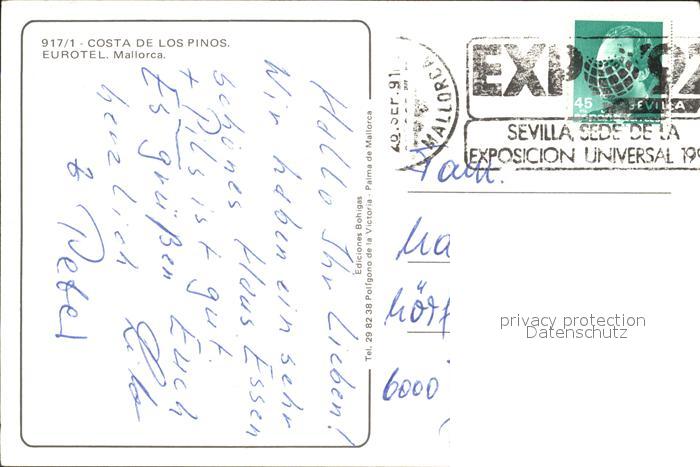 917/1 - COSTA DE LOS PINOS.
EUROTEL. Mallorca.
Hallo Ihr Lieben!
Wir haben ein sehr
schönes Haus. Essen
+ Pils ist gut.
Es grüßen Euch
herzlich
& Peter
Ediciones Bohigas
Tel. 29 82 38 Polígono de la Victoria - Palma de Mallorca
SEP. 91
MALLORCA
EXPO '92
SEVILLA, SEDE DE LA
EXPOSICION UNIVERSAL 199
45
SEVILLA
Fam.
Ma
Mörf
6000
privacy protection
Datenschutz